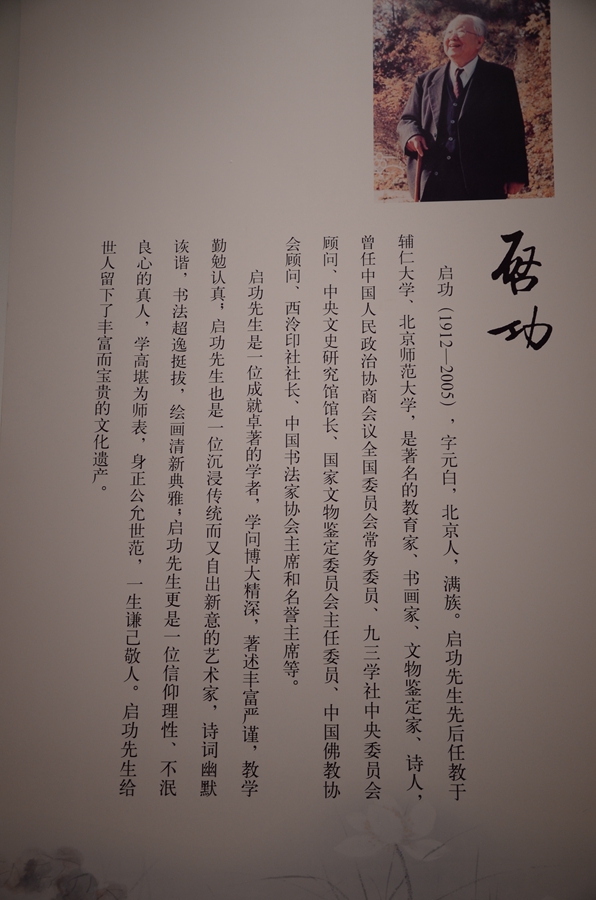 啓功
启功（1912—2005），字元白，北京人，满族。启功先生先后任教于
辅仁大学、北京师范大学，是著名的教育家、书画家、文物鉴定家、诗人，
曾任中国人民政治协商会议全国委员会常务委员、九三学社中央委员会
顾问、中央文史研究馆馆长、国家文物鉴定委员会主任委员、中国佛教协
会顾问、西泠印社社长、中国书法家协会主席和名誉主席等。
启功先生是一位成就卓著的学者，学问博大精深，著述丰富严谨，教学
勤勉认真；启功先生也是一位沉浸传统而又自出新意的艺术家，诗词幽默
诙谐，书法超逸挺拔，绘画清新典雅；启功先生更是一位信仰理性、不泯
良心的真人，学高堪为师表，身正公允世范，一生谦己敬人。启功先生给
世人留下了丰富而宝贵的文化遗产。